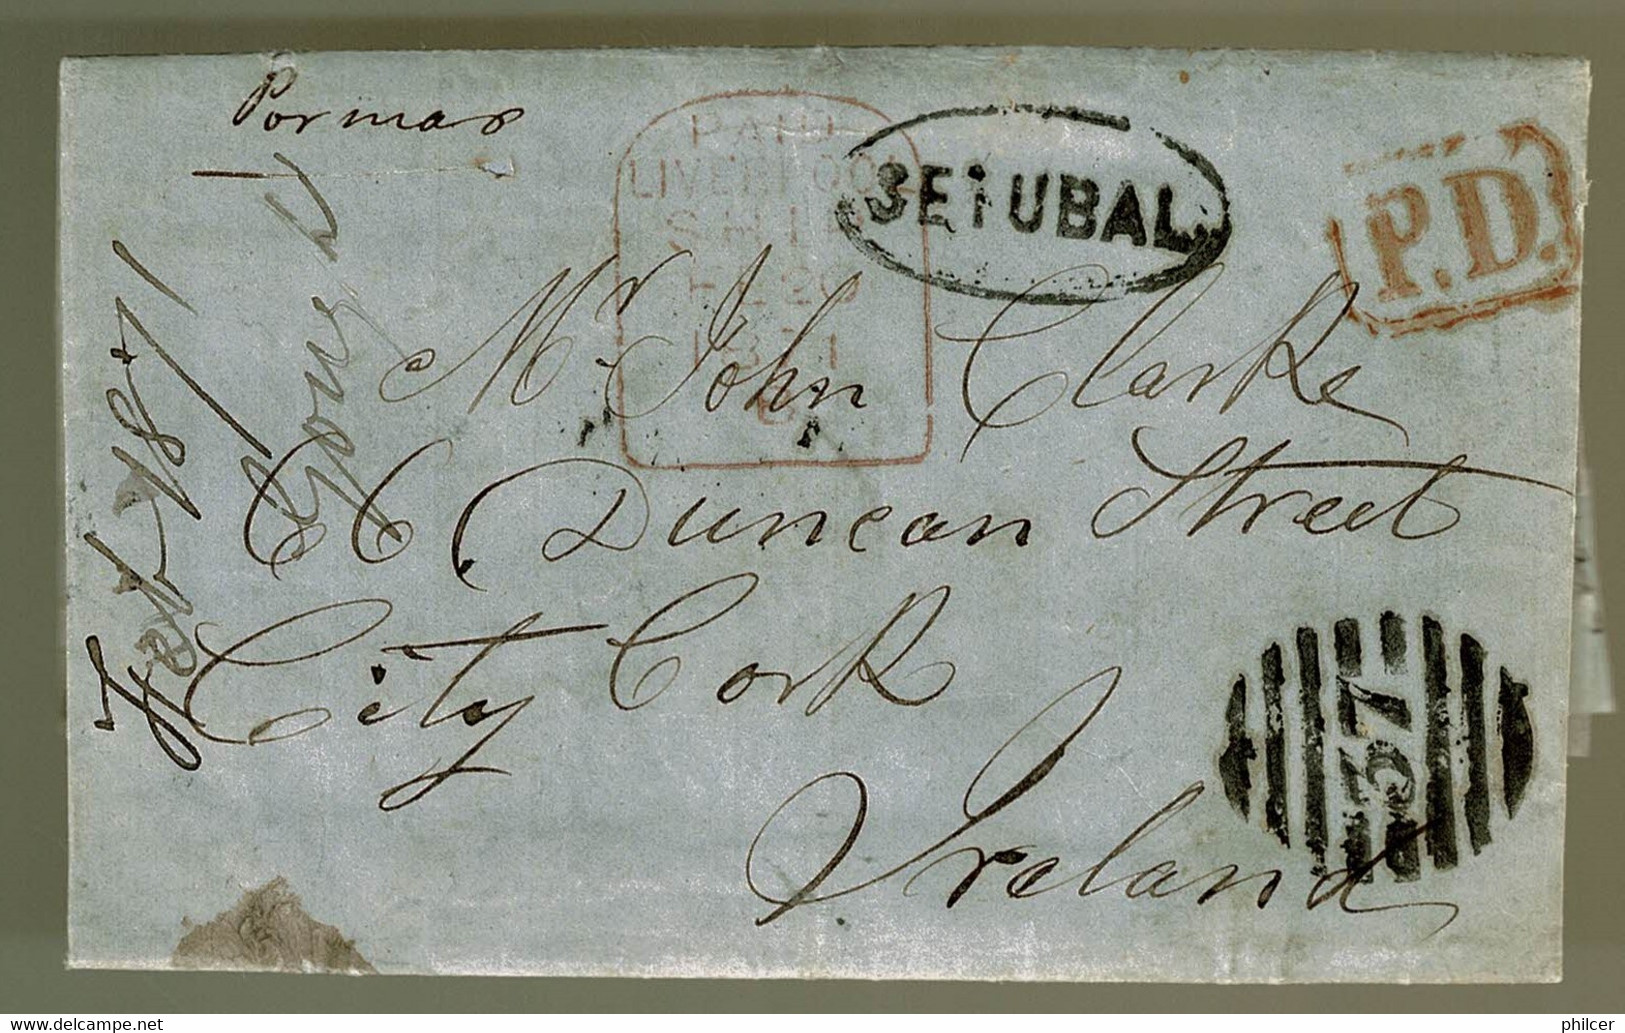 Por mar
PAID
LIVERPOOL
SHIP
FE 20
1871
SETUBAL
P.D.
Mr. John Clarke
66, Duncan Street
City Cork
Ireland
Feb 1871
57
delcampe.net
philcer